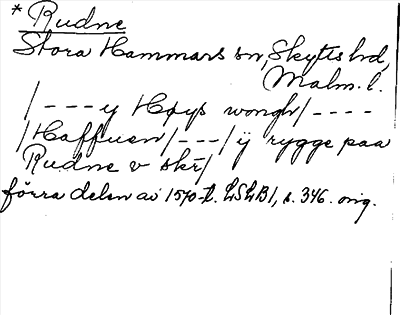 * Rudne
Stora Hammars sn, Skytts hd,
Malm. l.
/ - - - y Høys wongh / - - - -
/ Haffuen / - - - / ÿ rygge paa
Rudne v skr̄ /
förra delen av 1570-t. LSLB 1, s. 346. orig.